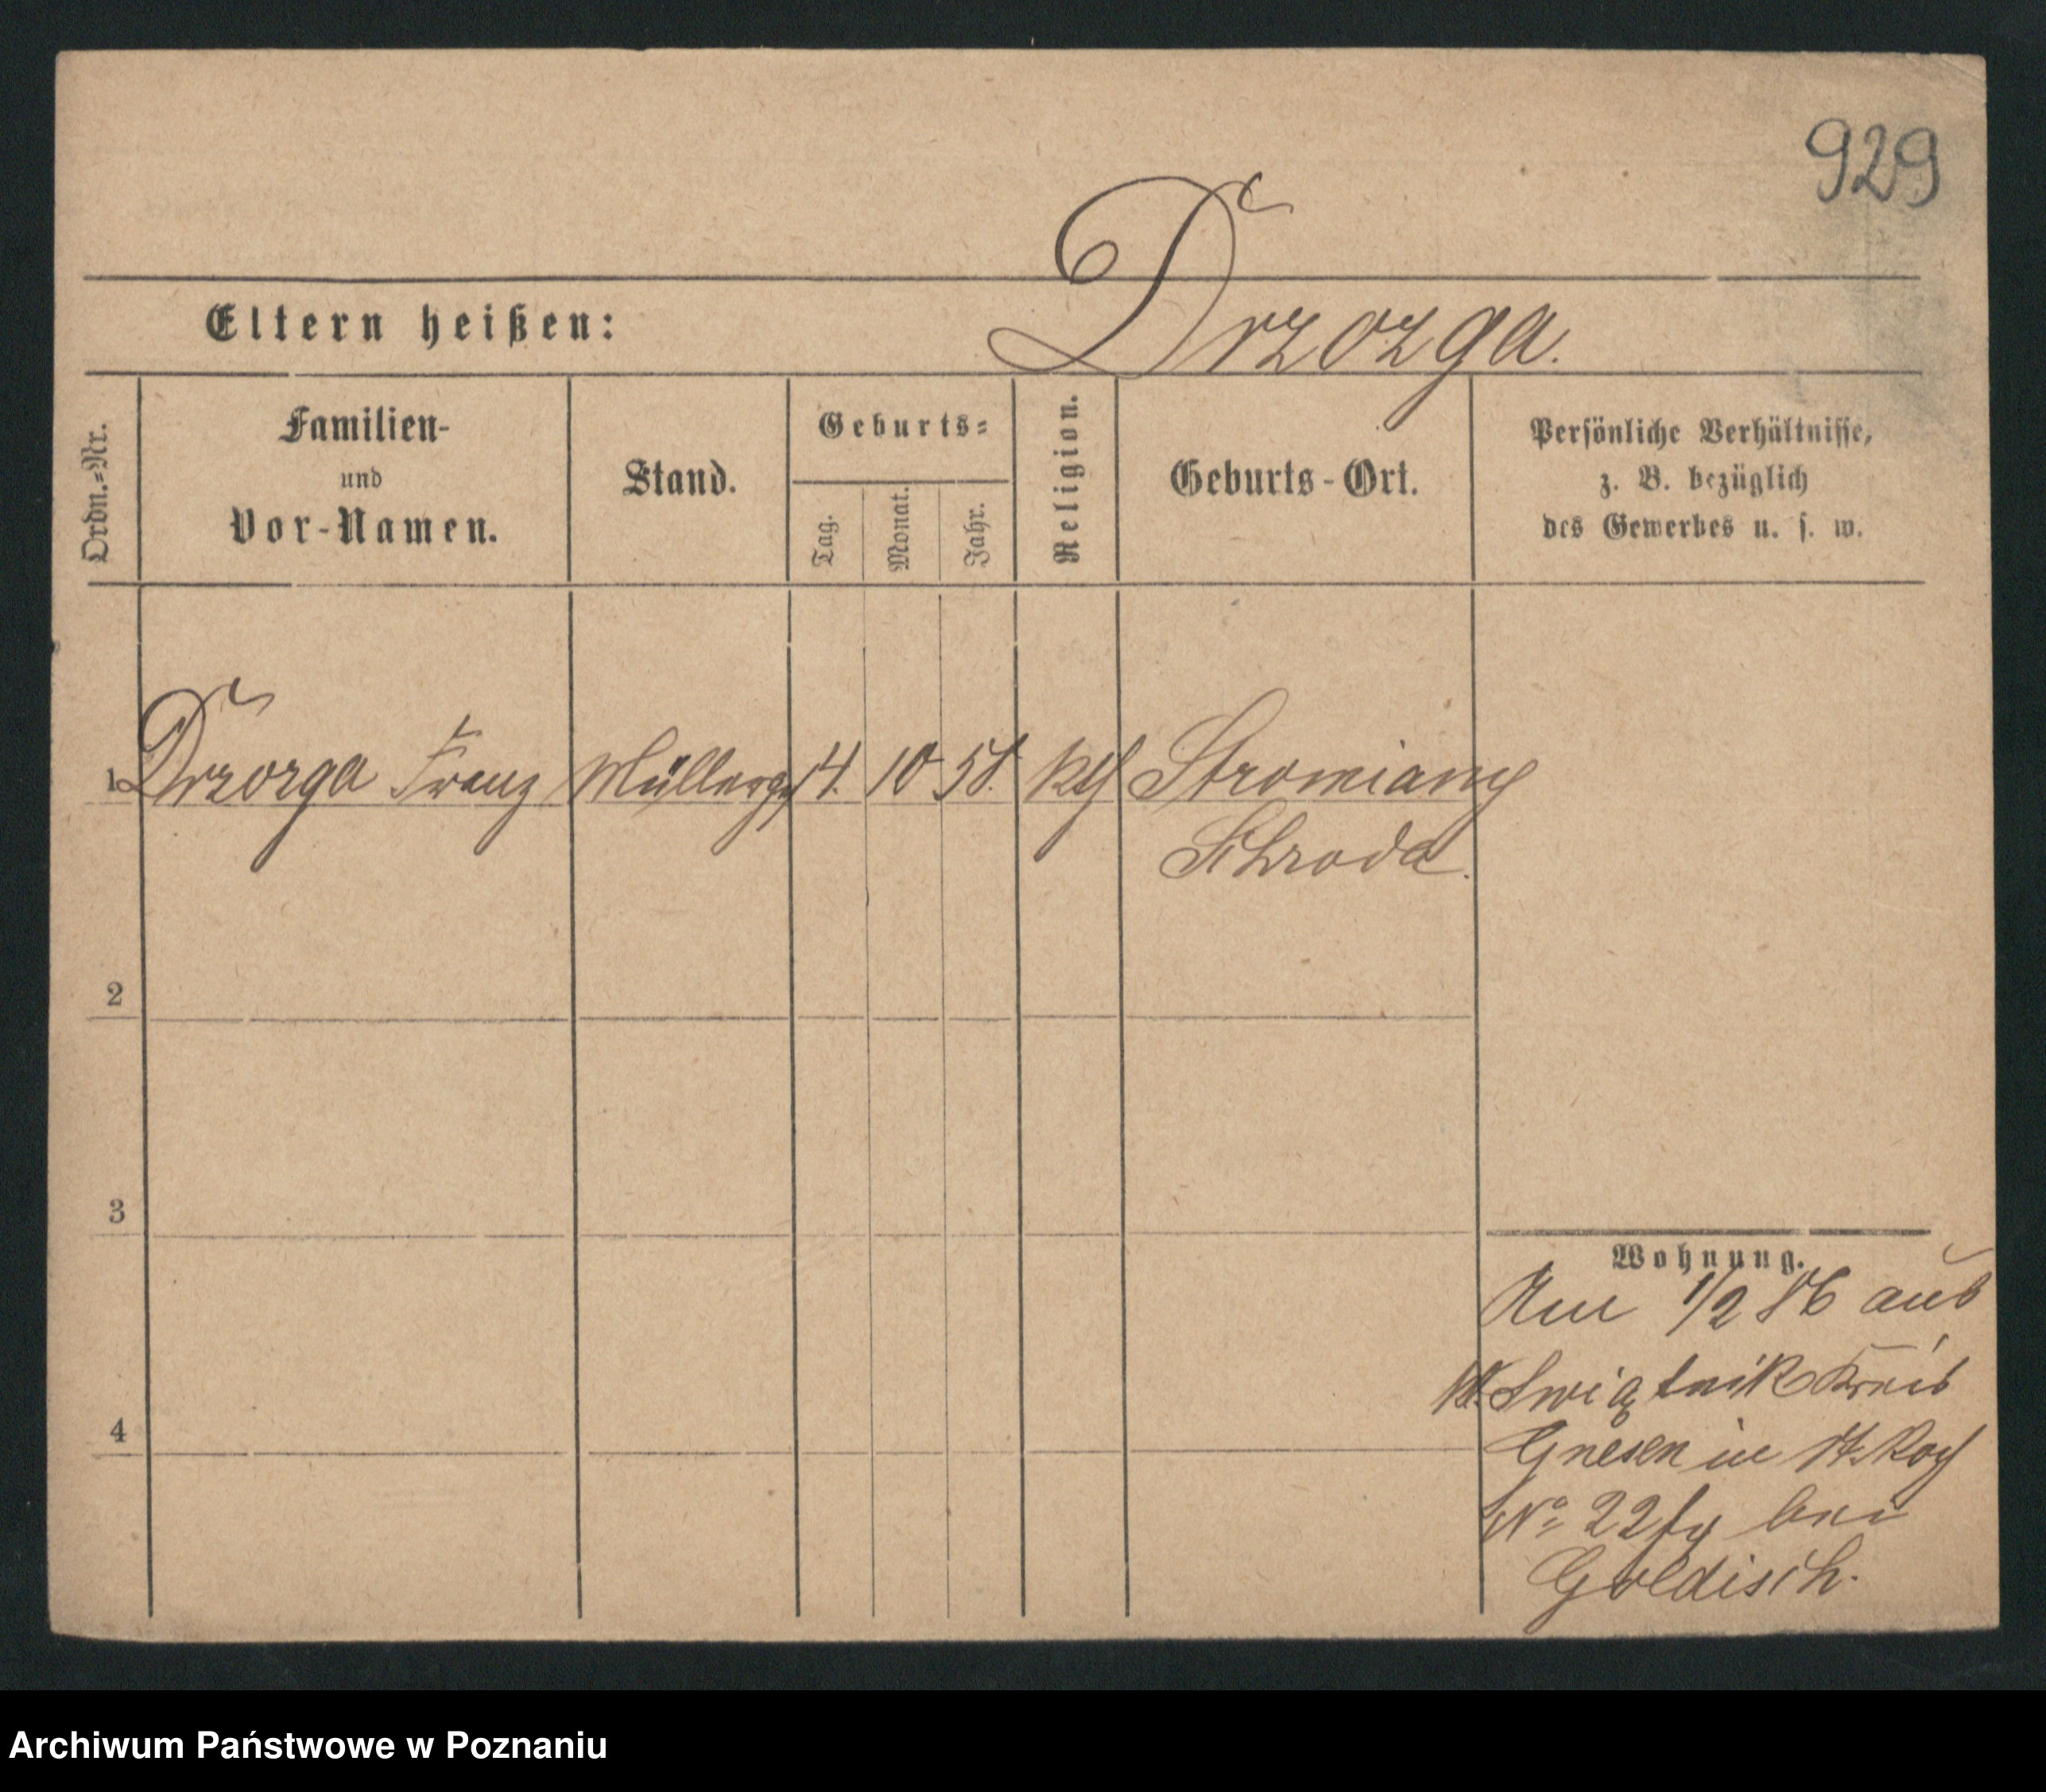 929
Drzozga.
Eltern heißen:
Ordn.=Nr.
Familien-
und
Vor-Namen.
Stand.
Geburts=
Tag.
Monat.
Jahr.
Religion.
Geburts-Ort.
Persönliche Verhältnisse,
z. B. bezüglich
des Gewerbes u. s. w.
1 Drzozga Franz Müllerges 14. 10 58. kth Stromiany
Schroda.
2
3
4
Wohnung.
Am 1/2 86 aus
Kl. Swiątnik Kreis
Gnesen in St. Roch
No 22 bei
Goldisch.
Archiwum Państwowe w Poznaniu